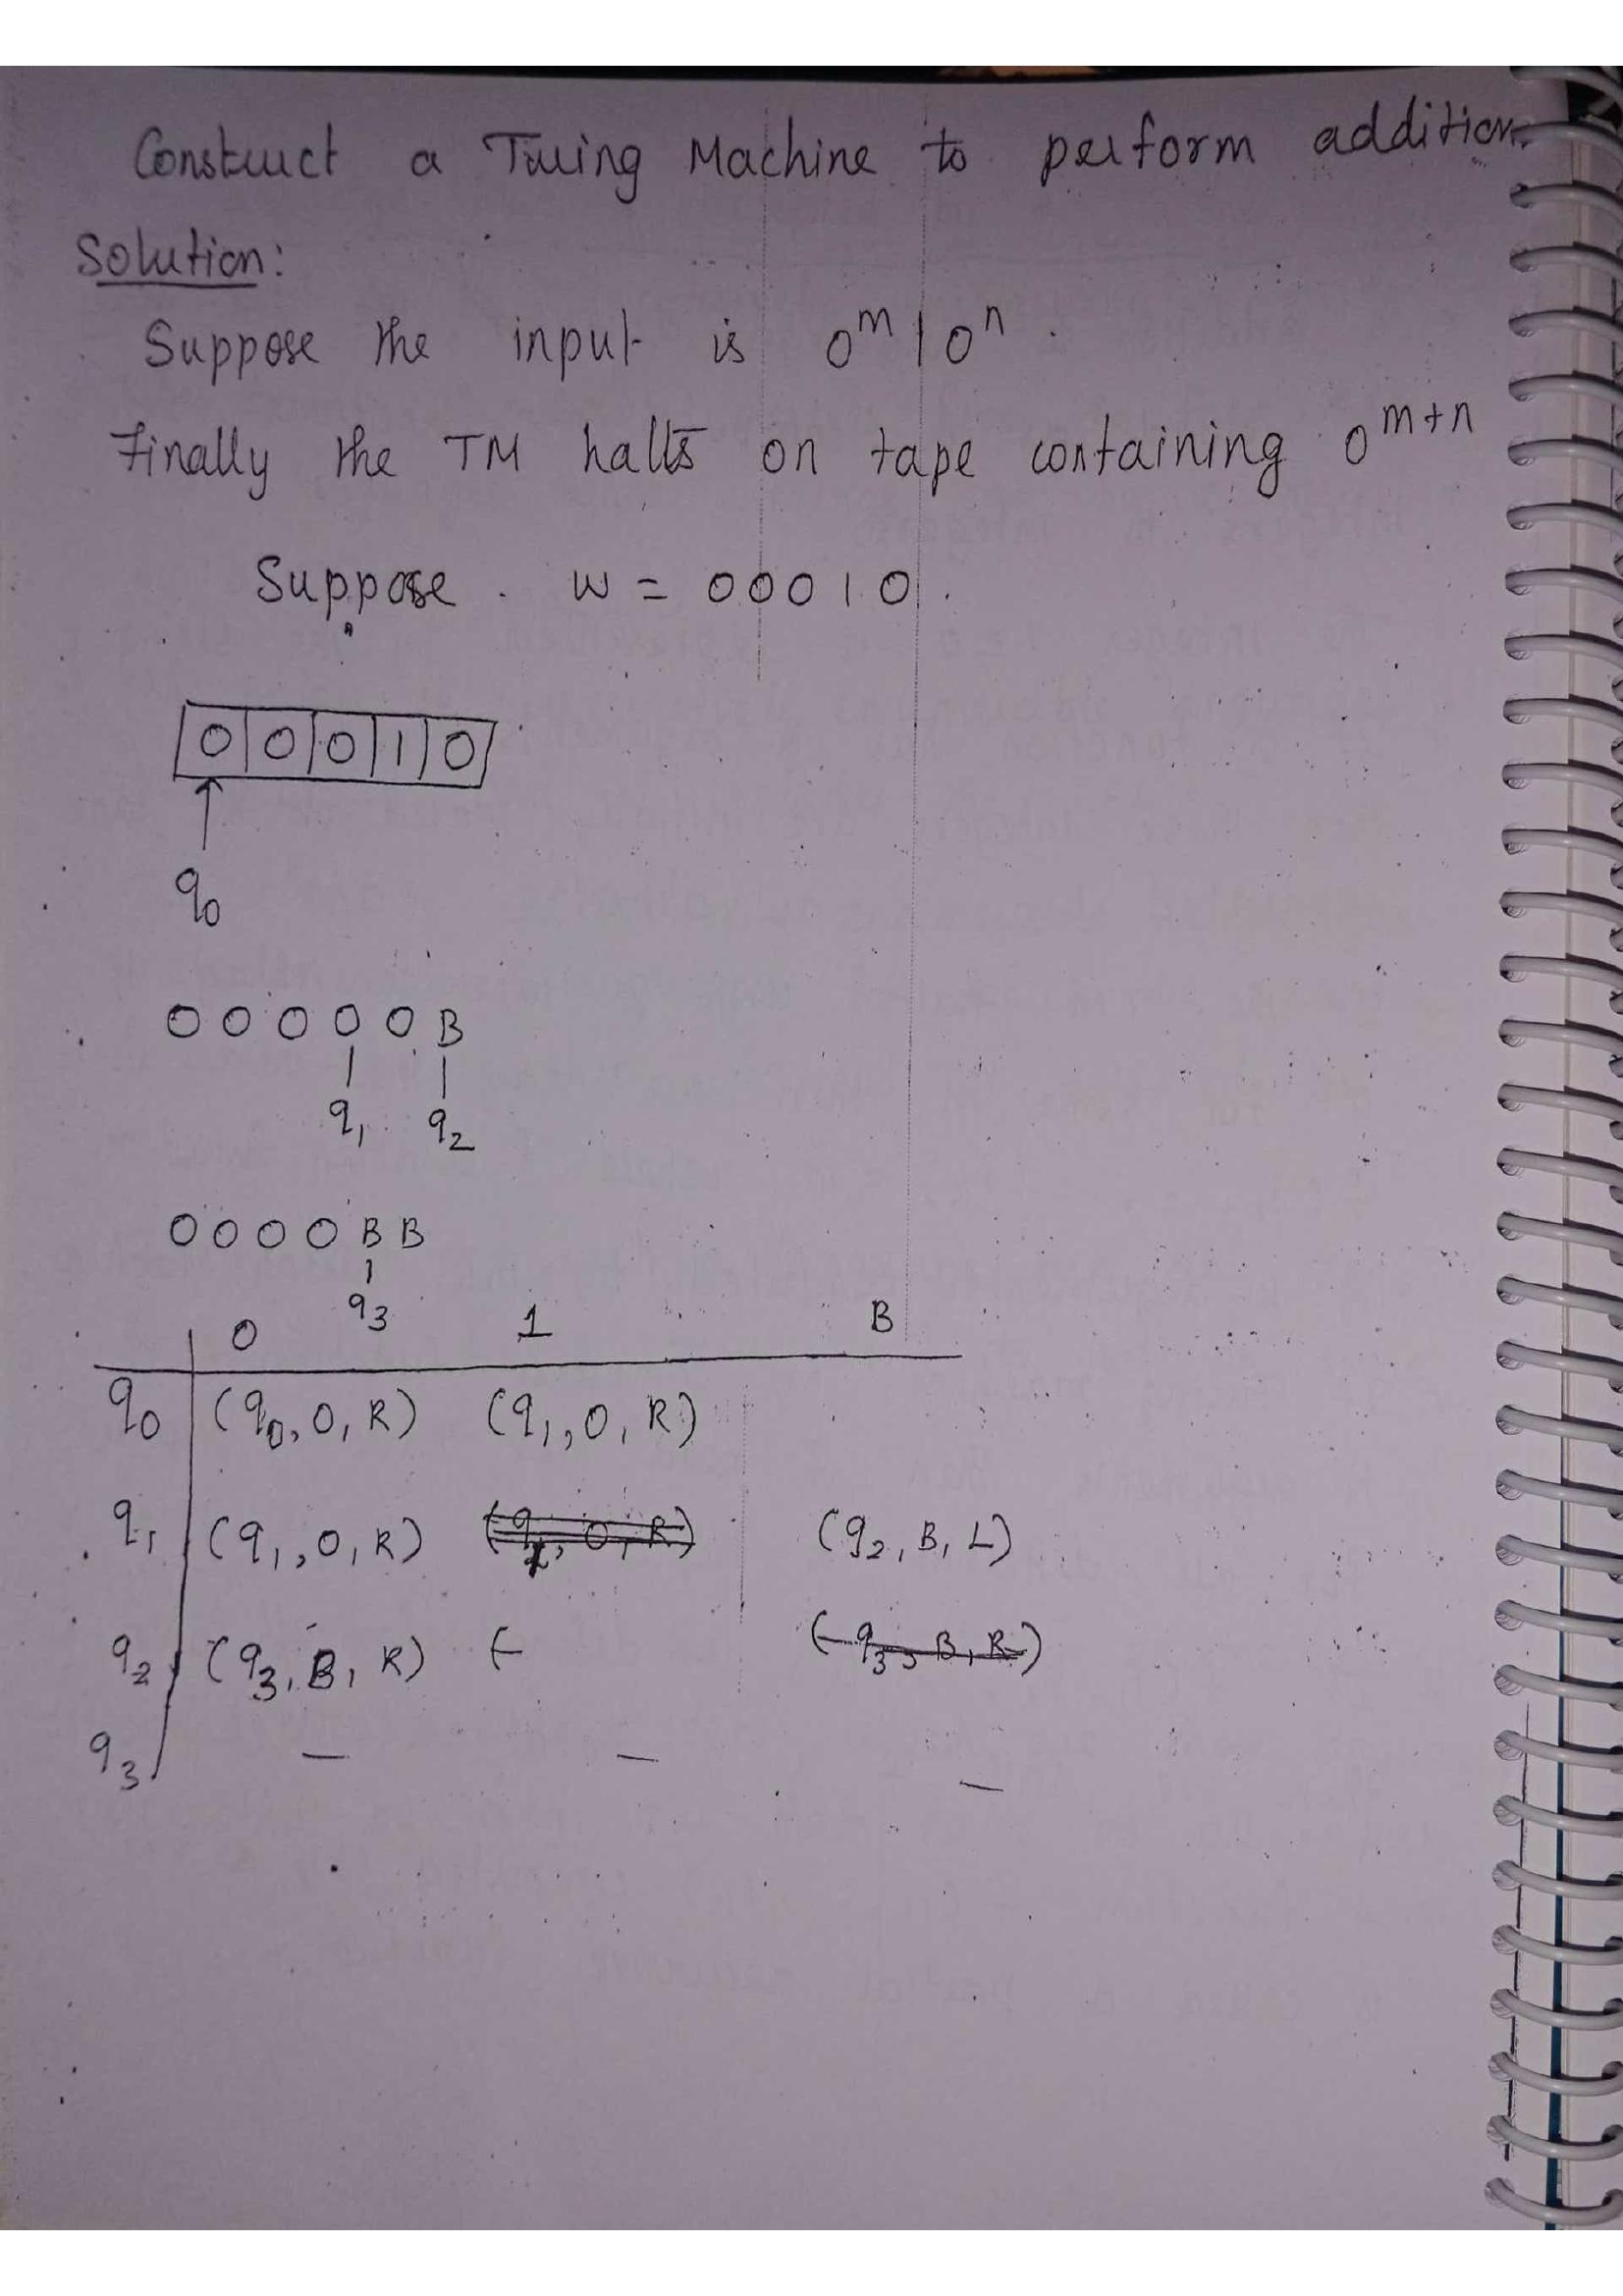 Construct a Turing Machine to perform addition.
Solution:
Suppose the input is 0^m 1 0^n.
Finally the TM halts on tape containing 0^m+n
Suppose w = 00010.
0 0 0 1 0
q0
0 0 0 0 0 B
q1 q2
0 0 0 0 B B
q3
0 1 B
q0 (q0, 0, R) (q1, 0, R)
q1 (q1, 0, R) (q2, B, L)
q2 (q3, B, R) ( (q3, B, R)
q3 — — —